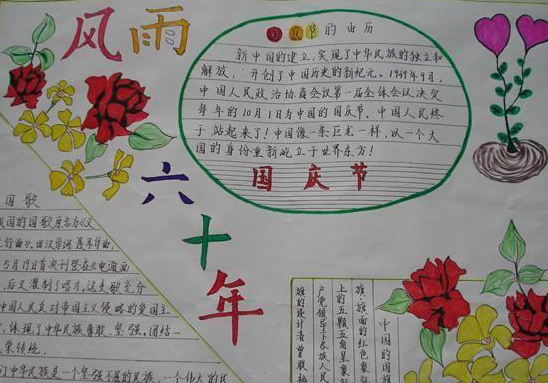 风雨
六十年
国庆节的由历
新中国的建立，实现了中华民族的独立和
解放，开创了中国历史的新纪元。1949年9月，
中国人民政治协商会议第一届全体会议决定
每年的10月1日为中国的国庆节。中国人民终
于站起来了！中国像一条巨龙一样，以一个大
国的身份重新屹立于世界东方！
国庆节
国歌
我国的国歌原名为《义
行曲》，由汉
5月19日首次刊登在《电通画
后又灌制了唱片，这支歌充分
中国人民反对帝国主义侵略的坚国主
体现了中华民族勇敢、坚强、团结一
荣传统。
们中华民族是一个坚强不屈的民族，一个伟大的民
中国的国旗
旗。旗面的红色象
上的五颗五角星象
产党领导下各族人民
旗的设计者曾联松